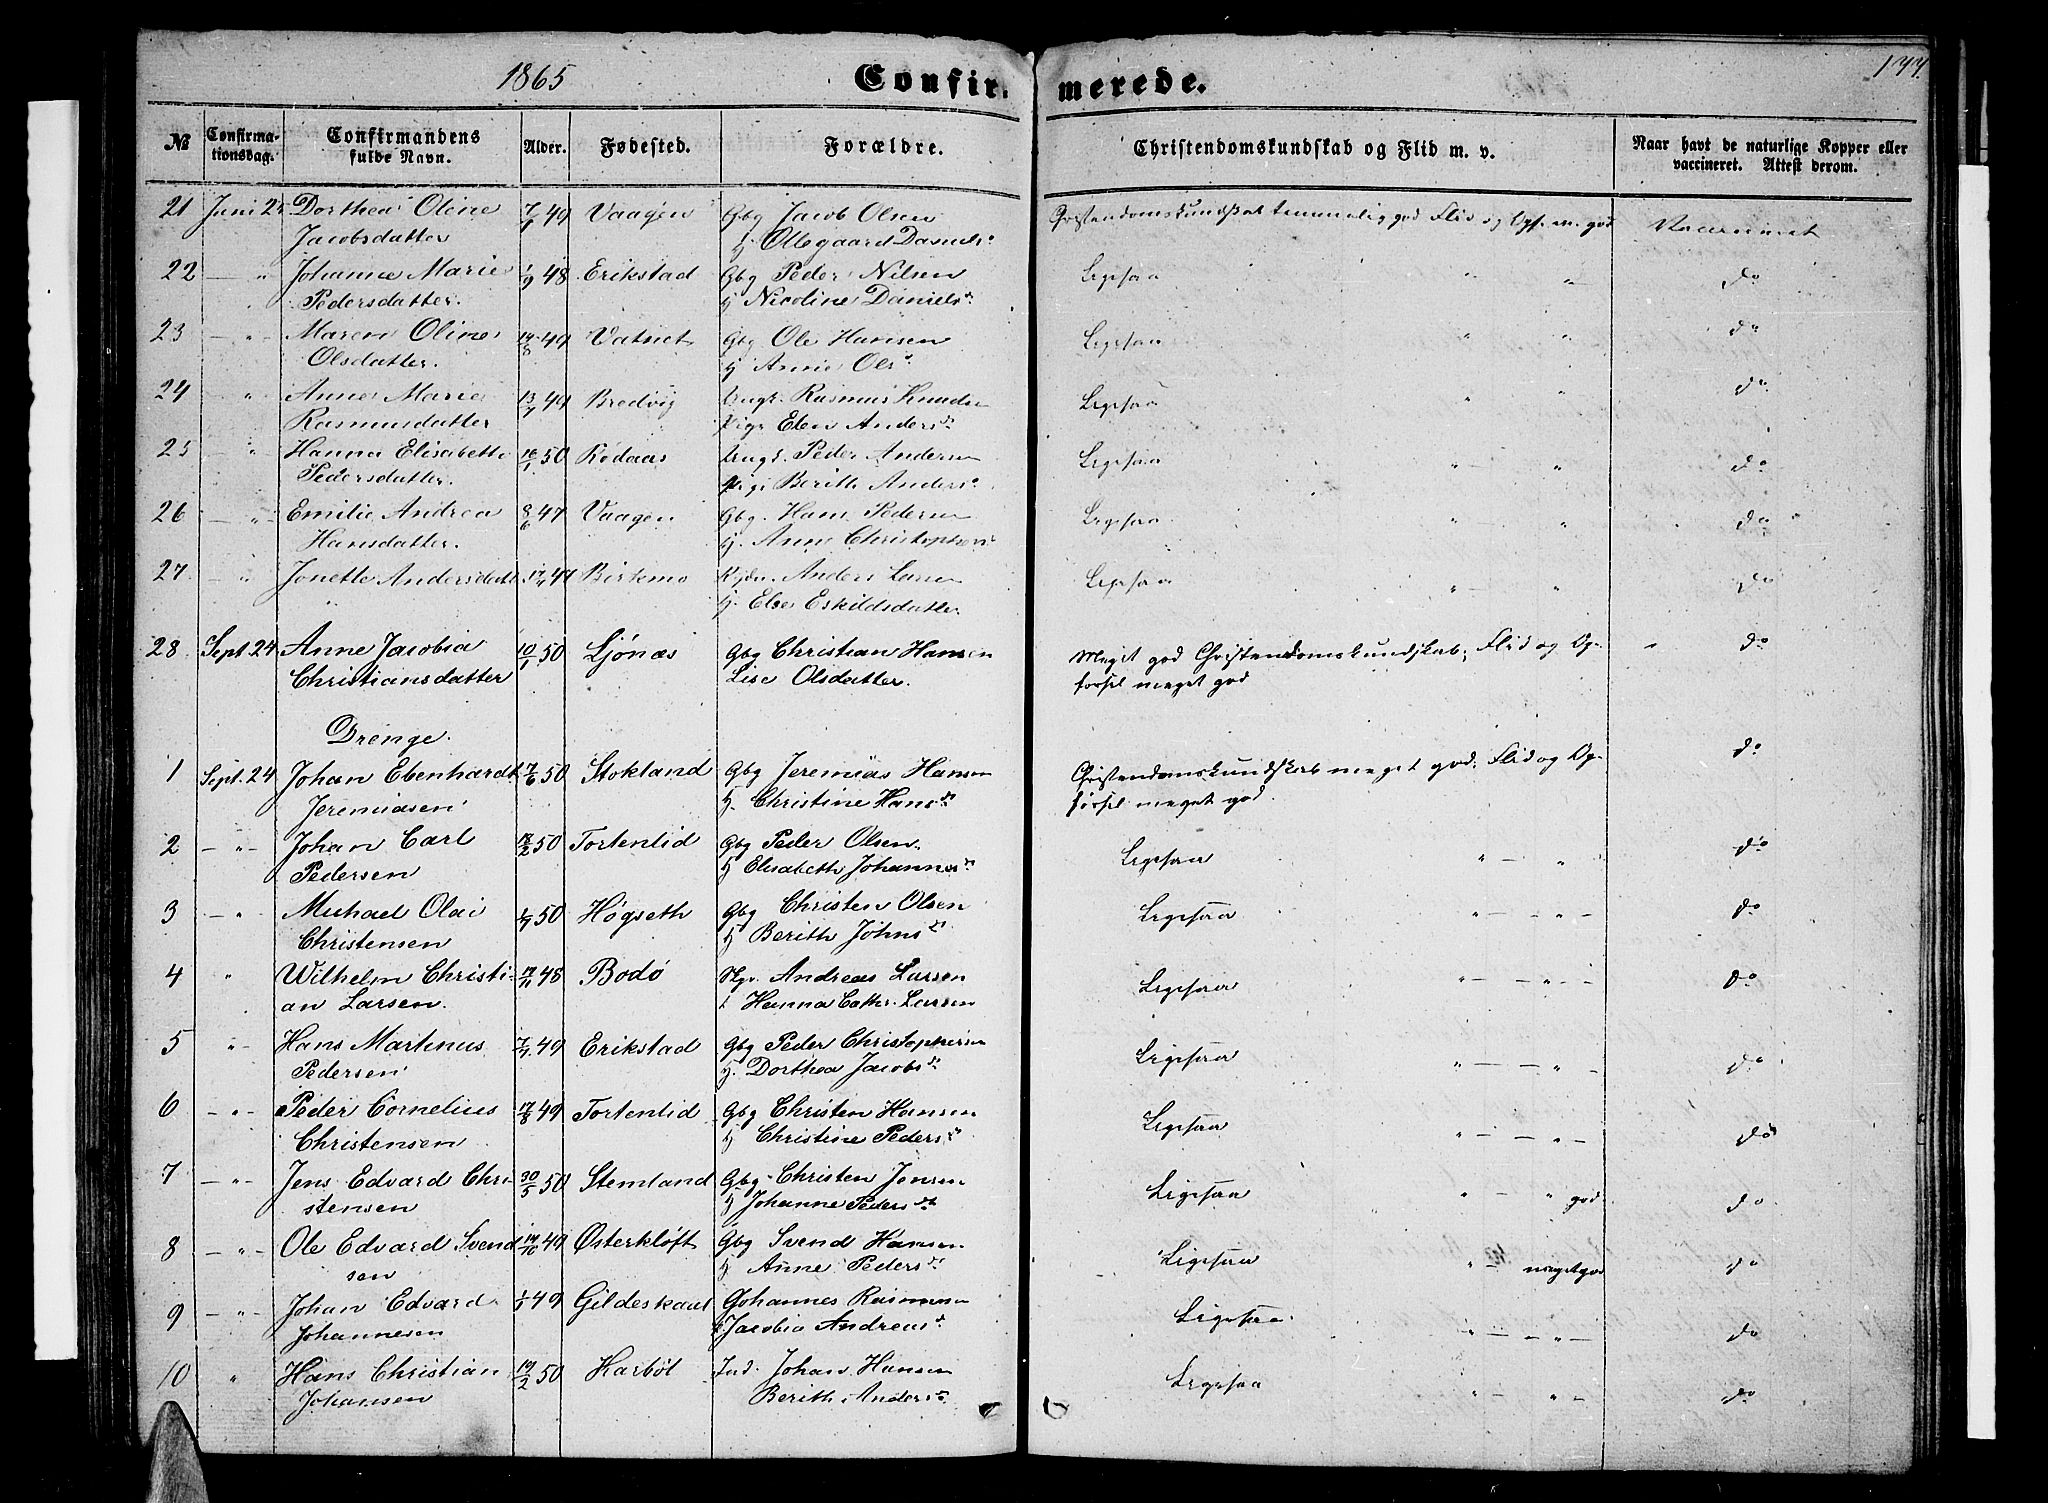 1865
Confir- merede.
177
№
Confirma-
tionsdag.
Confirmandens
fulde Navn.
Alder.
Fødested.
Forældre.
Christendomskundskab og Flid m. v.
Naar havt de naturlige Kopper eller
vaccineret. Attest derom.
21 Juni 25 Dorthea Oline 7/1 49 Vaagen Gbg Jacob Olsen Christendomskundskab temmelig god Flid og Opf. m. god Vaccineret
Jacobsdatter H Ollegaard Daniels d.
22 — " Johanna Marie 1/9 48 Erikstad Gbg Peder Nilsen Ligesaa " " do
Pedersdatter. H Nicoline Daniels d.
23 — " Maren Oline 14/8 49 Vatnet Gbg Ole Hansen Ligesaa " " do
Olsdatter. H Anne Ols d.
24 — " Anne Marie 13/7 49 Bredvig Ungk. Rasmus Knuds Ligesaa " do
Rasmusdatter Pige Elen Anders d.
25 — " Hanna Elisabeth 16/1 50 Rødaas Ungk. Peder Andersen Ligesaa " — " do
Pedersdatter. Pige Berith Anders d.
26 — " Emilie Andrea 8/6 47 Vaagen Gbg. Hans Pedersen Ligesaa " " do
Hansdatter. H. Anne Christophers d.
27 — " Jonette Andersdatt 47 Birkmo Anders Larsen Ligesaa " — " do
H. Else Eskildsdatter.
28 Sept 24 Anne Jacobia 10/1 50 Ljønæs Gbg Christian Hansen Meget god Christendomskundskab; Flid og Op- do
Christiansdatter Lise Olsdatter. førsel meget god
Drenge.
1 Sept. 24 Johan Ebenhardt 17/6 50 Stokland Gbg Jeremias Hansen Christendomskundskab meget god; Flid og Op- do
Jeremiasen H. Christine Hans d. førsel meget god.
2 — " — Johan Carl 18/2 50 Tortenlid Gbg Peder Olsen. Ligesaa " — " do
Pedersen H Elisabeth Johannes d.
3 — " Michael Olai 50 Høgseth Gbg Christen Olsen Ligesaa " — " — do
Christensen H Berith Johns d.
4 " Wilhelm Christi- 17/11 48 Bodø Andreas Larsen Ligesaa " — — " — do
an Larsen. Hanna Cathr. Larsen
5 " — Hans Martinus 49 Erikstad Gbg Peder Christophersen Ligesaa " — — " — do
Pedersen H. Dorthea Jacobs d.
6 — " — Peder Cornelius 17/8 49 Tortenlid Gbg Christen Hansen Ligesaa " — — " — do
Christensen H Christine Peders d.
7 — " — Jens Edvard Chri 30/5 50 Stemland Gbg Christen Jensen Ligesaa " — " god do
stensen H Johanne Peders d.
8 — " — Ole Edvard Svend 14/10 49 Østerkløft Gbg Svend Hansen Ligesaa " — meget god do
sen H Anne Peders d.
9 — " — Johan Edvard 49 Gildeskaal Johannes Rasmusen Ligesaa " — — " — do
Johannesen Jacobia Andreas d.
10 " Hans Christian 19/2 50 Karbøl Ind. Johan Hansen Ligesaa " — " — do
Johansen Berith Anders d.